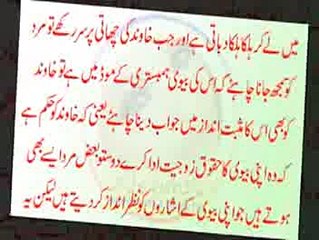 میں لے کر ہلکا ہلکا دباتی ہے اور جب خاوند کی چھاتی پر سر رکھے تو مرد
کو سمجھ جانا چاہئے کہ اس کی بیوی ہمبستری کے موڈ میں ہے تو خاوند
کو بھی اس کا مثبت انداز میں جواب دینا چاہئے یعنی کہ خاوند کو حکم ہے
کہ وہ اپنی بیوی کا حقوق زوجیت ادا کرے دوستو بعض مرد ایسے بھی
ہوتے ہیں جو اپنی بیوی کے اشاروں کو نظر انداز کر دیتے ہیں لیکن یہ